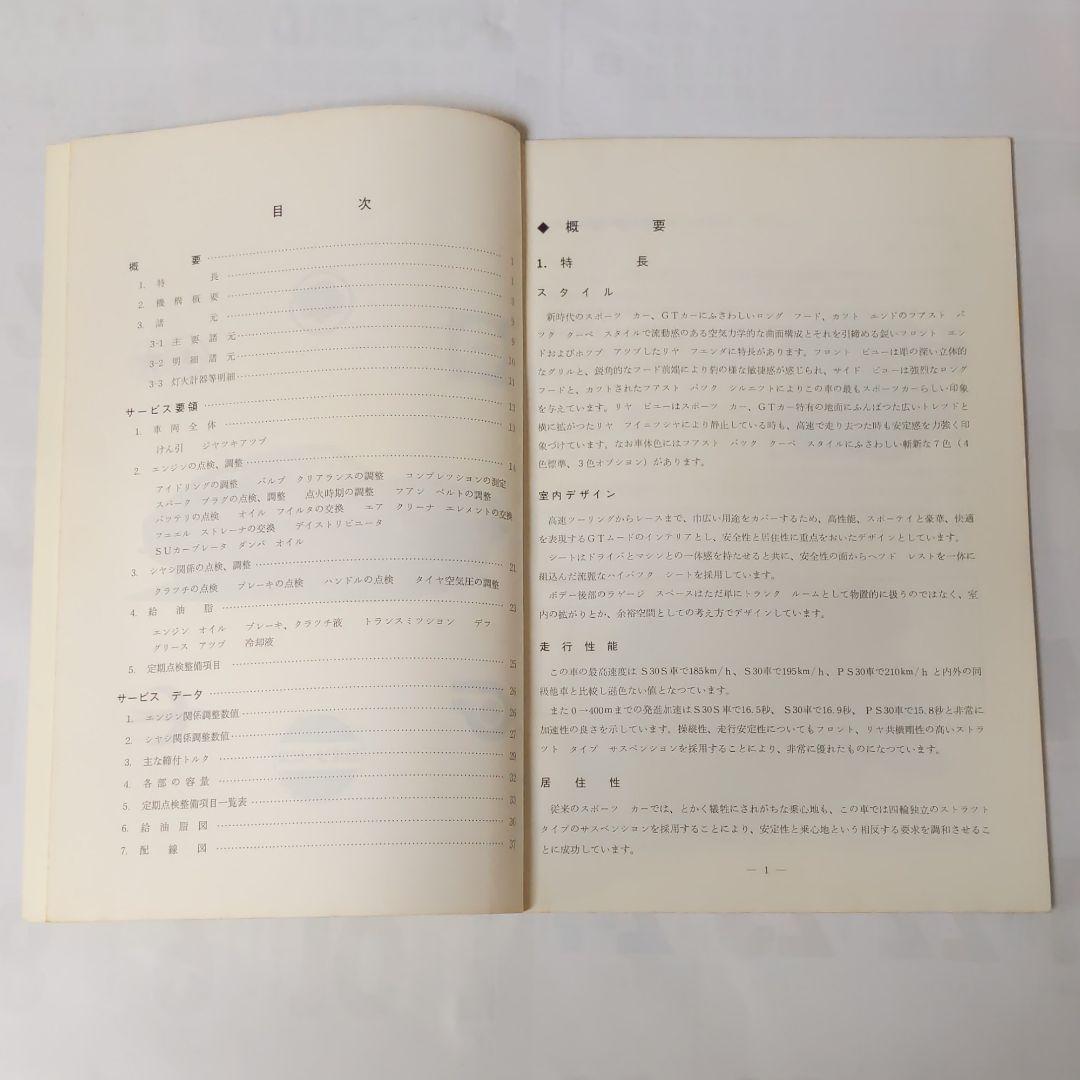 目次
概要 1
1. 特長 1
2. 機構概要 8
3. 諸元 9
3-1 主要諸元 9
3-2 明細諸元 10
3-3 灯火計器等明細 11
サービス要領 13
1. 車両全体 13
けん引 ジヤツキアツプ
2. エンジンの点検、調整 14
アイドリングの調整 バルブ クリアランスの調整 コンプレツシヨンの測定
スパーク プラグの点検、調整 点火時期の調整 フアン ベルトの調整
バツテリの点検 オイル フイルタの交換 エア クリーナ エレメントの交換
フユエル ストレーナの交換 デイストリビユータ
SUカーブレータ ダンパ オイル
3. シヤシ関係の点検、調整 21
クラツチの点検 ブレーキの点検 ハンドルの点検 タイヤ空気圧の調整
4. 給油脂 23
エンジン オイル ブレーキ、クラツチ液 トランスミツシヨン デフ
グリース アツプ 冷却液
5. 定期点検整備項目 25
サービス データ 26
1. エンジン関係調整数値 26
2. シヤシ関係調整数値 27
3. 主な締付トルク 29
4. 各部の容量 32
5. 定期点検整備項目一覧表 33
6. 給油脂図 36
7. 配線図 37
◆ 概要
1. 特長
スタイル
新時代のスポーツ カー、GTカーにふさわしいロング フード、カツト エンドのフアスト バ
ツク クーペ スタイルで流動感のある空気力学的な曲面構成とそれを引締める鋭いフロント エン
ドおよびホツプ アツプしたリヤ フエンダに特長があります。フロント ビユーは彫の深い立体的
なグリルと、鋭角的なフード前端により豹の様な敏捷感が感じられ、サイド ビユーは強烈なロング
フードと、カツトされたフアスト バツク シルエツトによりこの車の最もスポーツカーらしい印象
を与えています。リヤ ビユーはスポーツ カー、GTカー特有の地面にふんばつた広いトレツドと
横に拡がつたリヤ フイニツシヤにより静止している時も、高速で走り去つた時も安定感を力強く印
象づけています。なお車体色にはフアスト バツク クーペ スタイルにふさわしい斬新な7色（4
色標準、3色オプシヨン）があります。
室内デザイン
高速ツーリングからレースまで、巾広い用途をカバーするため、高性能、スポーテイと豪華、快適
を表現するGTムードのインテリアとし、安全性と居住性に重点をおいたデザインとしています。
シートはドライバとマシンとの一体感を持たせると共に、安全性の面からヘツド レストを一体に
組込んだ流麗なハイバツク シートを採用しています。
ボデー後部のラゲージ スペースはただ単にトランク ルームとして物置的に扱うのではなく、室
内の拡がりとか、余裕空間としての考え方でデザインしています。
走行性能
この車の最高速度はS30S車で185km/h、S30車で195km/h、PS30車で210km/hと内外の同
級他車と比較し遜色ない値となつています。
また0→400mまでの発進加速はS30S車で16.5秒、S30車で16.9秒、PS30車で15.8秒と非常に
加速性の良さを示しています。操縦性、走行安定性についてもフロント、リヤ共横剛性の高いストラ
ツト タイプ サスペンシヨンを採用することにより、非常に優れたものになつています。
居住性
従来のスポーツ カーでは、とかく犠牲にされがちな乗心地も、この車では四輪独立のストラツト
タイプのサスペンシヨンを採用することにより、安定性と乗心地という相反する要求を調和させるこ
とに成功しています。
— 1 —